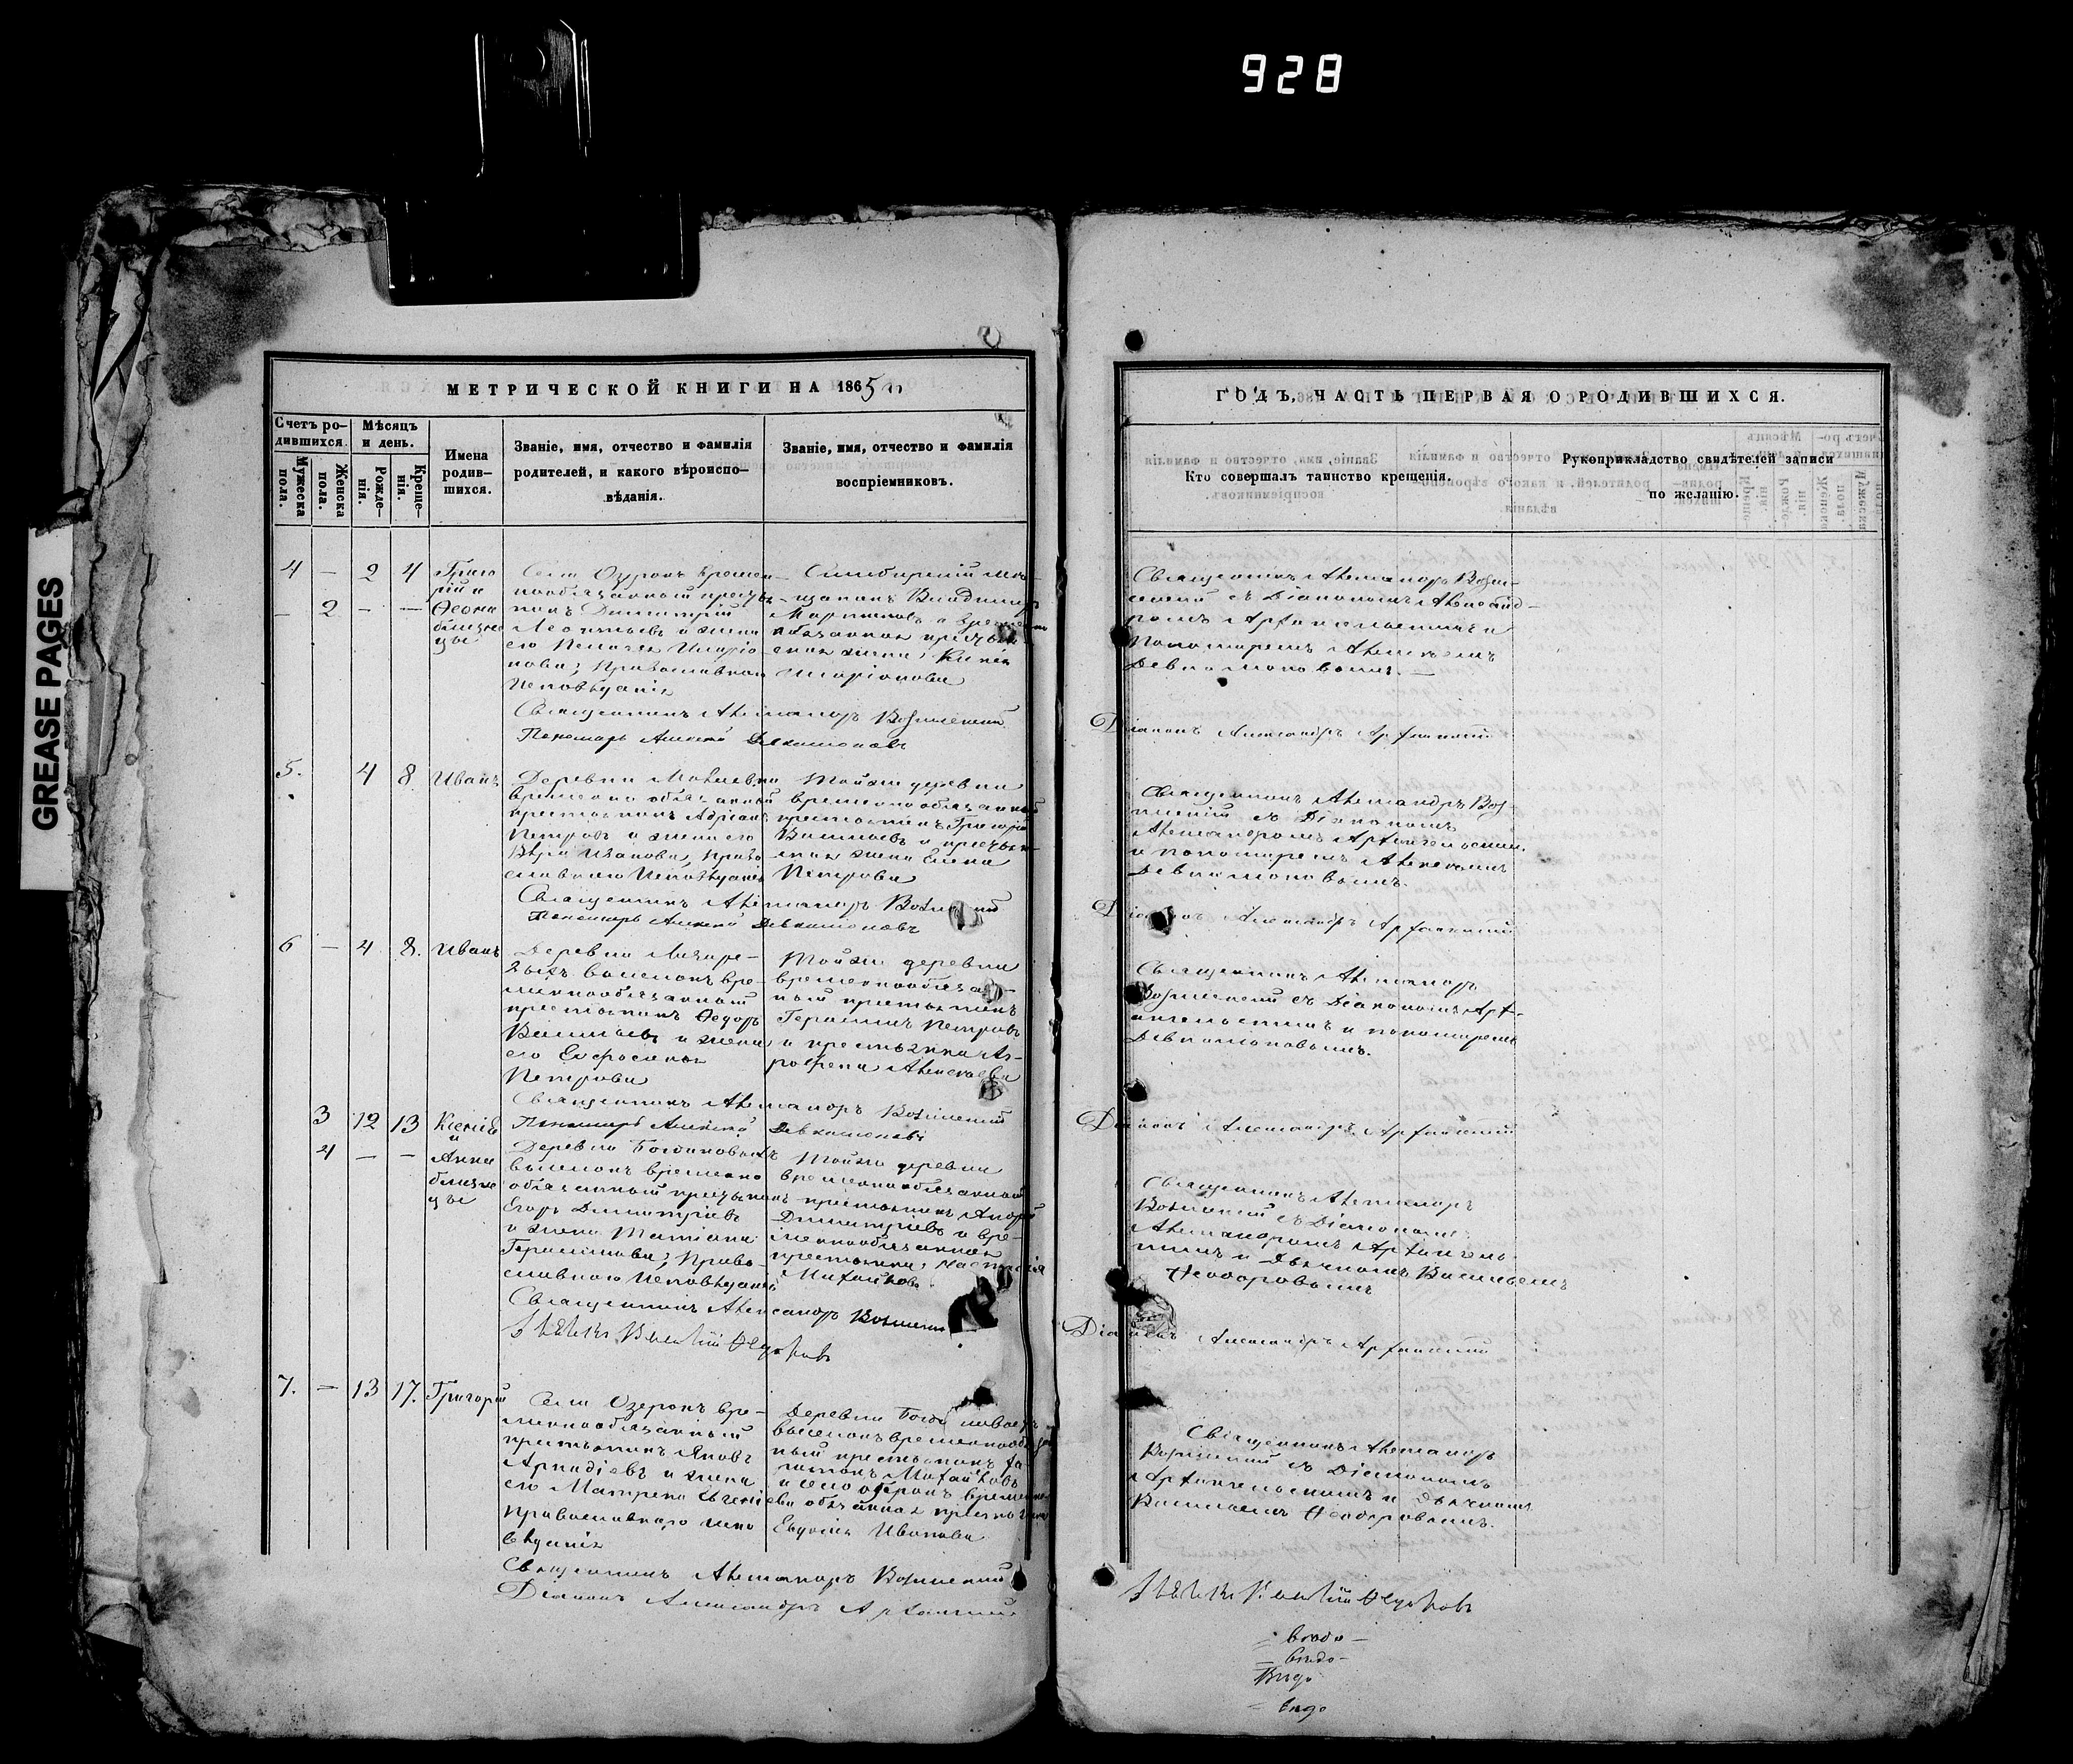 928
GREASE PAGES
МЕТРИЧЕСКОЙ КНИГИ НА 1865
Счетъ ро-
дившихся.
Мужеска
пола.
Женска
пола.
Мѣсяцъ
и день.
Рожде-
нія.
Креще-
нія.
Имена
родив-
шихся.
Званіе, имя, отчество и фамилія
родителей, и какого вѣроиспо-
вѣданія.
Званіе, имя, отчество и фамилія
воспріемниковъ.
4 — 2 4
Григо
рій и
— 2 — —
Ѳеона
близне
цы
Села Озерокъ времен
нообязанный кресть
нинъ Димитрій
Леонтьевъ и жена
его Пелагея Иларіо
нова; Православнаго
Исповѣданія
Симбирскій мѣ-
щанинъ Владимиръ
Мартиновъ и временно
обязанная кресть
ская жена,
Иларіонова
Священникъ Александръ Вознесенскій
Пономарь Алексѣй Девлатоновъ
5. 4 8 Иванъ
Деревни
временно обязанный
крестьянинъ Адріанъ
Петровъ и жена его
Вѣра Иванова, Право
славнаго Исповѣданія
Той же деревни
временнообязанный
крестьянинъ Григорій
Васильевъ и кресть
ская жена Елена
Петрова
Священникъ Александръ
Пономарь Алексѣй Девлатоновъ
6 — 4 8. Иванъ
Деревни Лазаре-
выхъ выселокъ вре-
меннообязанный
крестьянинъ Ѳедоръ
Васильевъ и жена
его Евфросинья
Петрова
Той же деревни
временнообяза-
ный крестьянинъ
Герасимъ Петровъ
и крестьянка Аг-
рафена Алексѣева
Священникъ Александръ Вознесенскій
Пономарь Алексѣй Девлатоновъ
3 12 13 Ксенія
и
4 — — Анна
близне
цы
Деревни Богдановыхъ
выселокъ временно
обязанный крестьянинъ
Егоръ Димитріевъ
и жена Татіана
Герасимова; Право-
славнаго Исповѣданія
Той же деревни
временнообязанный
крестьянинъ Андрей
Димитріевъ и вре-
меннообязанная
крестьянка, Настасія
Михайлова
Священникъ Александръ Вознесен
Дьячекъ Василій Ѳедоровъ
7. — 13 17. Григорій
Села Озерокъ вре-
меннообязанный
крестьянинъ Яковъ
Аркадіевъ и жена
его Матрена Евгеніева
православнаго испо
вѣданія
Деревни Богдановыхъ
выселокъ временнообязан
ный крестьянинъ Ха-
ритонъ Михайловъ
и село Озерокъ временно
обязанная
Евдокія Иванова
Священникъ Александръ Вознесенскій
Діаконъ Александръ Архангельскій
ГОДЪ, ЧАСТЬ ПЕРВАЯ О РОДИВШИХСЯ.
Кто совершалъ таинство крещенія.
Рукоприкладство свидѣтелей записи
по желанію.
Священникъ Александръ Возне-
сенскій съ Діакономъ Александ-
ромъ Архангельскимъ и
Пономаремъ Алексѣемъ
Девлатоновымъ. —
Діаконъ Александръ Архангельскій
Священникъ Александръ Воз-
несенскій съ Діакономъ
Александромъ Архангельскимъ
и пономаремъ Алексѣемъ
Девлатоновымъ.
Діаконъ Александръ Архангельскій
Священникъ Александръ
Вознесенскій съ Діакономъ Арх-
ангельскимъ и пономаремъ
Девлатоновымъ.
Діаконъ Александръ Архангельскій
Священникъ Александръ
Вознесенскій съ Діакономъ
Александромъ Архангель-
скимъ и Дьячкомъ Васильемъ
Ѳеодоровымъ
Діаконъ Александръ Архангельскій
Священникъ Александръ
Вознесенскій съ Діакономъ
Архангельскимъ и Дьячкомъ
Васильемъ Ѳеодоровымъ.
Дьячекъ Василій Ѳедоровъ